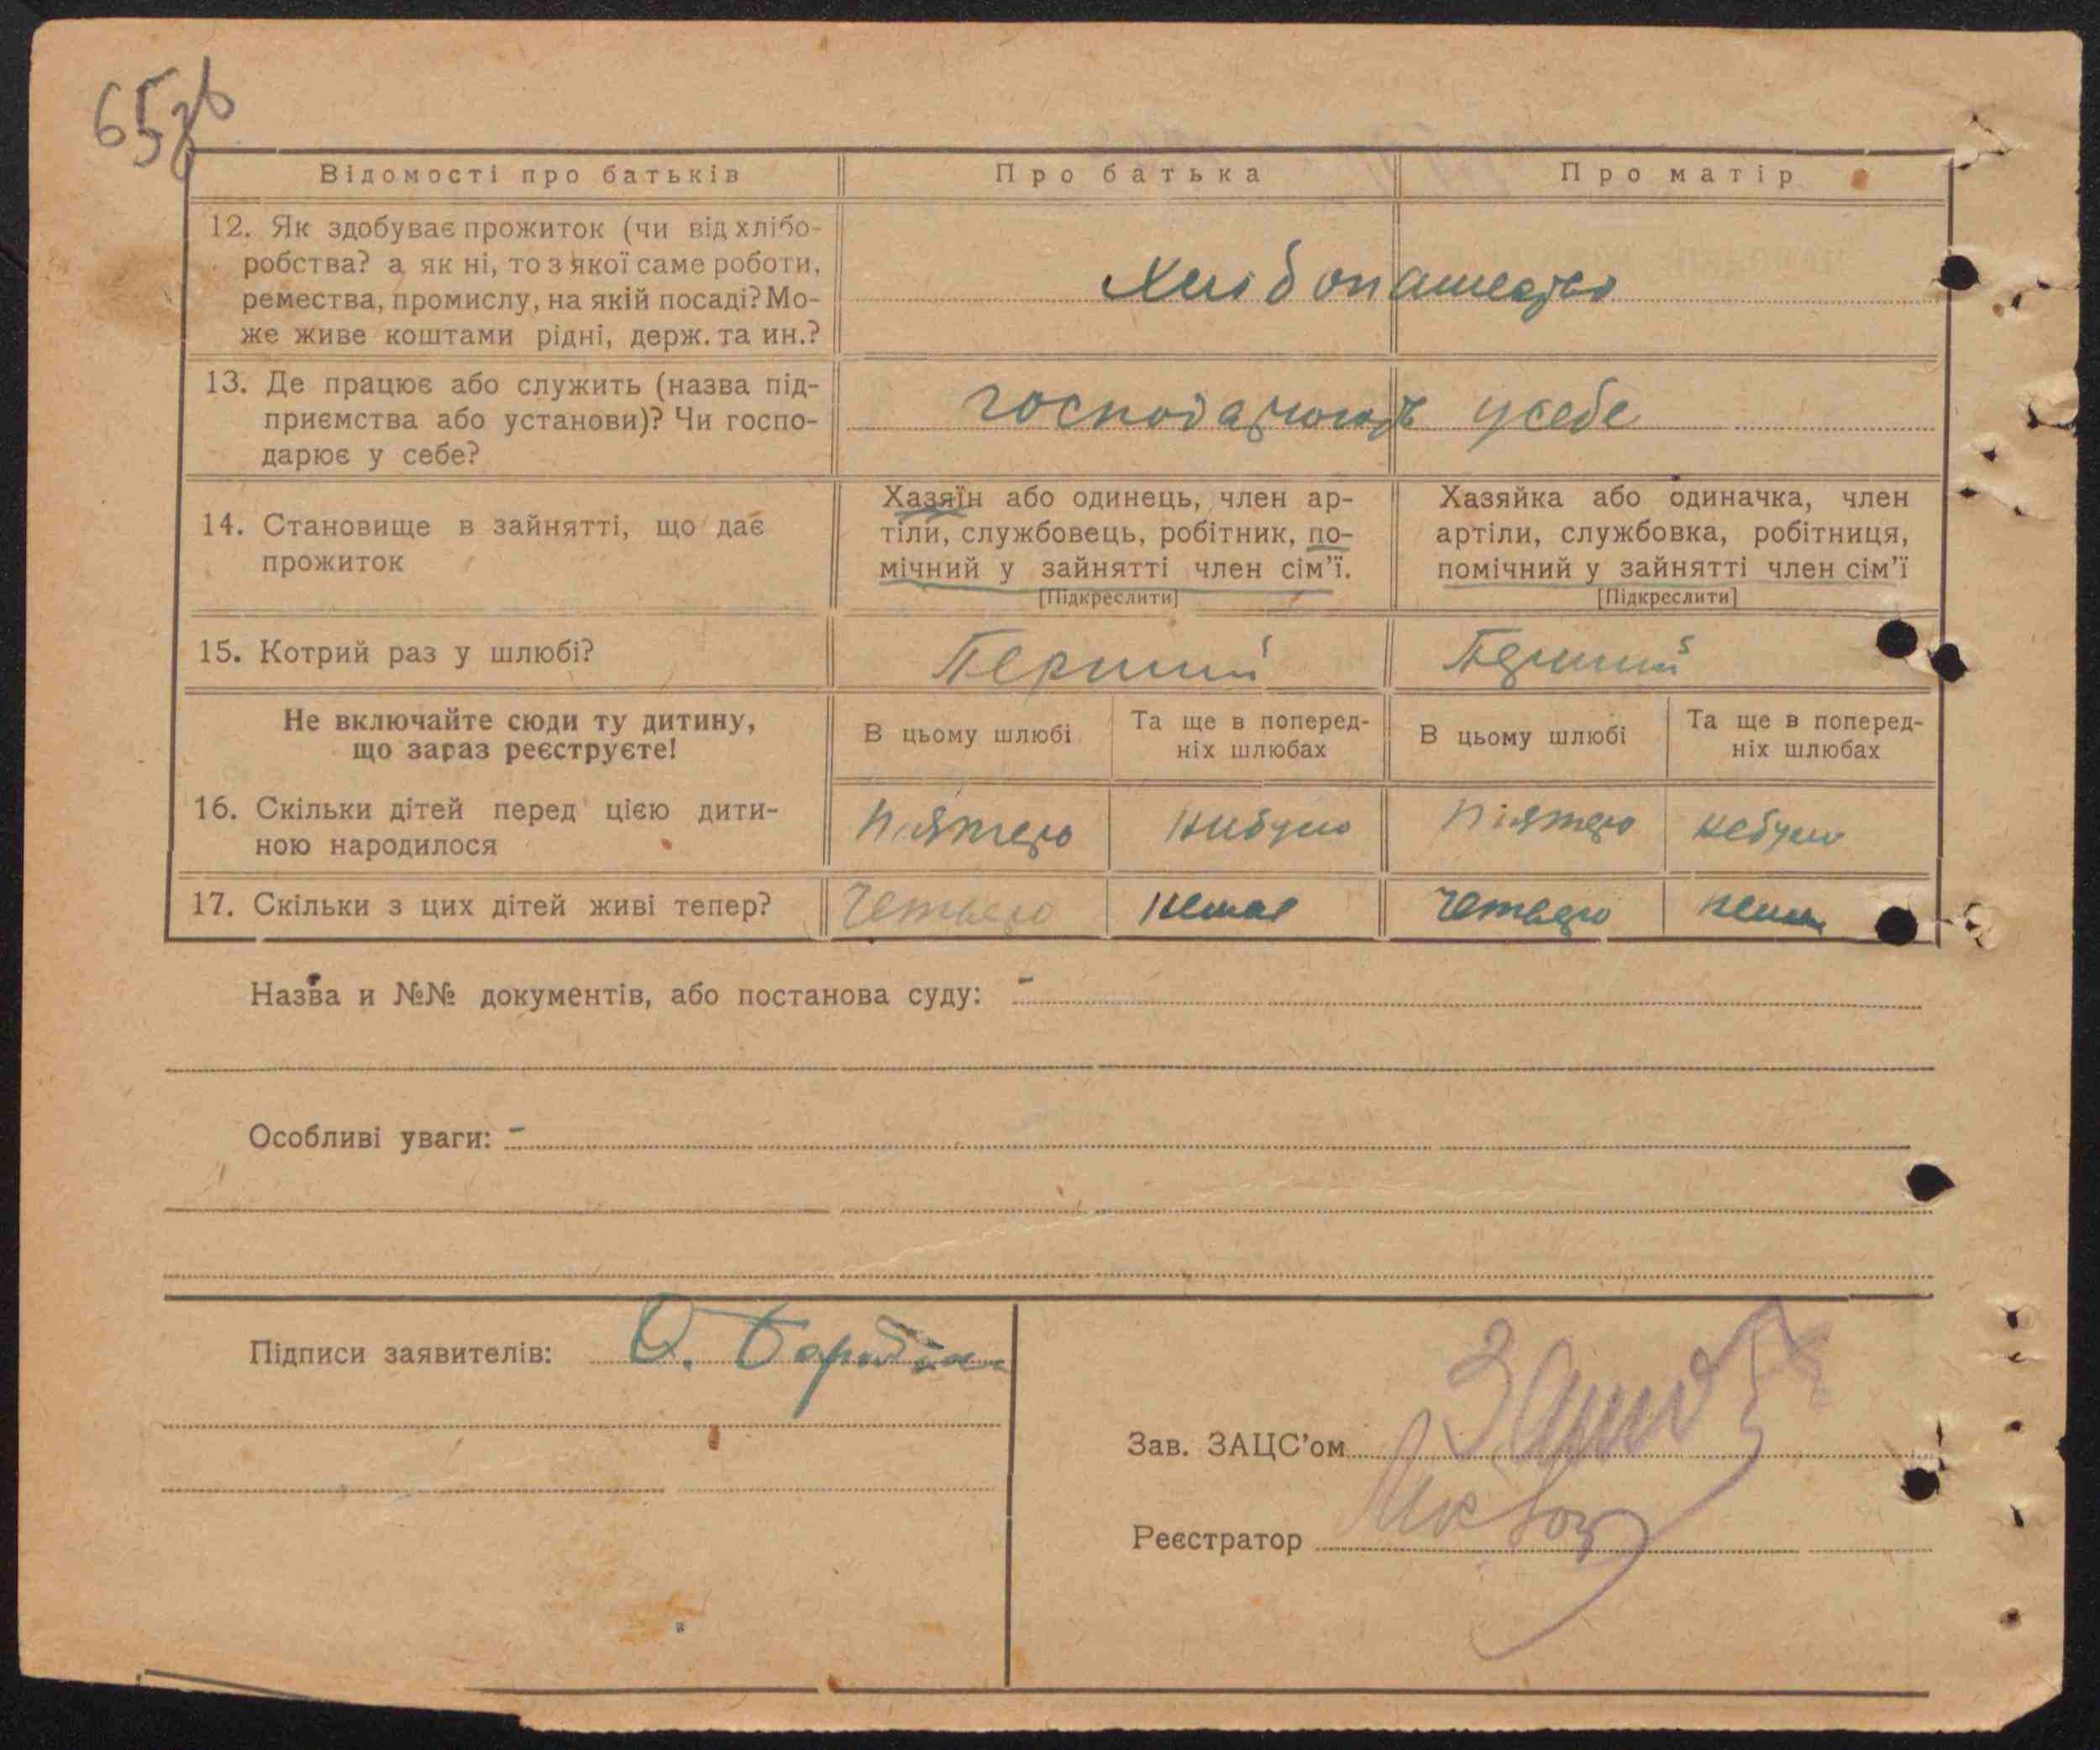 65зв
Відомості про батьків
Про батька
Про матір
12. Як здобуває прожиток (чи від хлібо-
робства? а як ні, то з якої саме роботи,
ремества, промислу, на якій посаді? Мо-
же живе коштами рідні, держ. та ин.?
Хлібопашество
13. Де працює або служить (назва під-
приємства або установи)? Чи госпо-
дарює у себе?
господарюють усебе
14. Становище в зайнятті, що дає
прожиток
Хазяїн або одинець, член ар-
тіли, службовець, робітник, по-
мічний у зайнятті член сім'ї.
[Підкреслити]
Хазяйка або одиначка, член
артіли, службовка, робітниця,
помічний у зайнятті член сім'ї
[Підкреслити]
15. Котрий раз у шлюбі?
Перший
Перший
Не включайте сюди ту дитину,
що зараз реєструєте!
В цьому шлюбі
Та ще в поперед-
ніх шлюбах
В цьому шлюбі
Та ще в поперед-
ніх шлюбах
16. Скільки дітей перед цією дити-
ною народилося
Пiятеро
нибуло
Пiятеро
небуло
17. Скільки з цих дітей живі тепер?
Четверо
немає
четверо
немає
Назва и №№ документів, або постанова суду: -
Особливі уваги: -
Підписи заявителів: О.
Зав. ЗАЦС'ом
Реєстратор